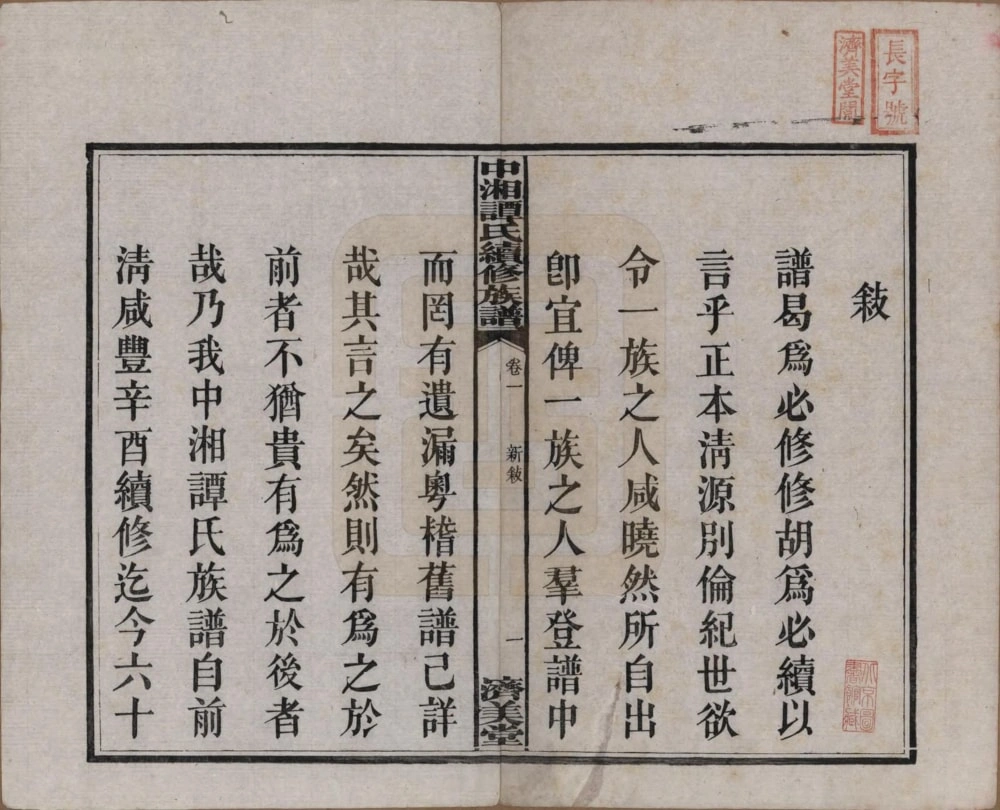 長字號
濟美堂關
敍
譜曷爲必修修胡爲必續以
言乎正本淸源別倫紀世欲
令一族之人咸曉然所自出
卽宜俾一族之人羣登譜中
中湘譚氏續修族譜
卷一
新敍
一
濟美堂
而罔有遺漏粵稽舊譜已詳
哉其言之矣然則有爲之於
前者不猶貴有爲之於後者
哉乃我中湘譚氏族譜自前
淸咸豐辛酉續修迄今六十